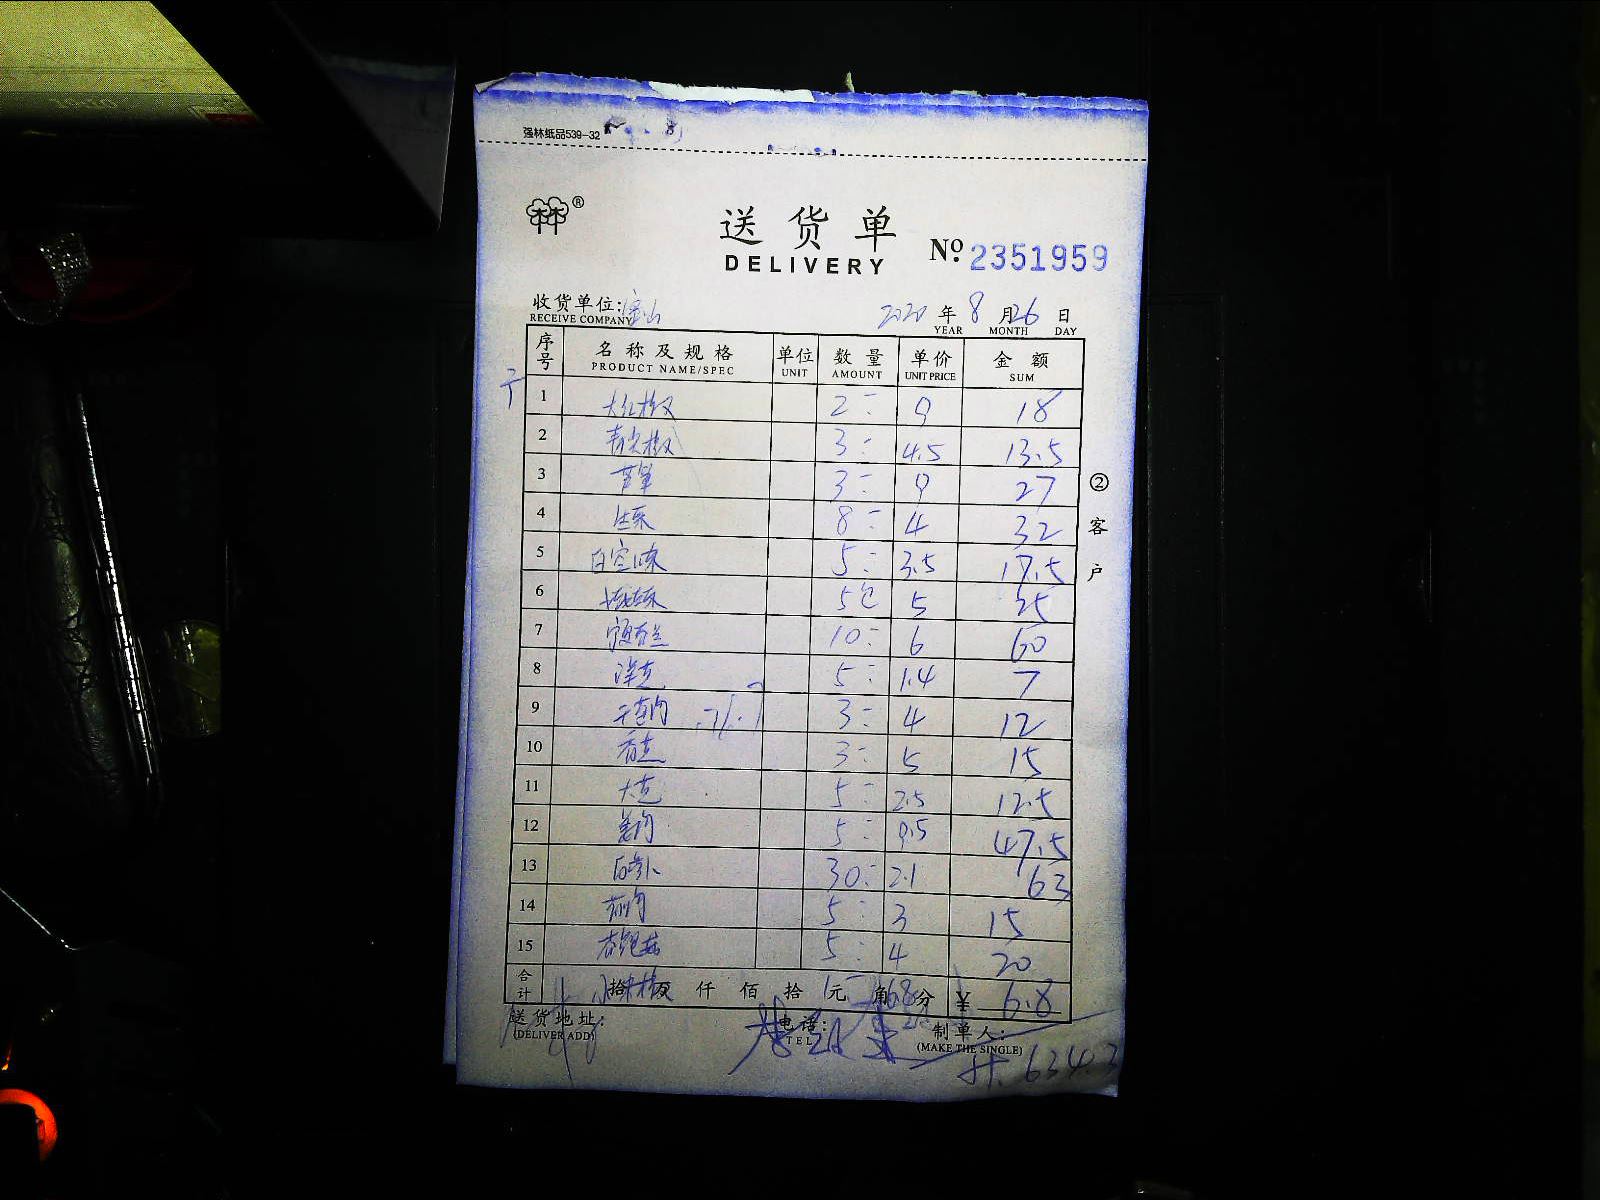 强林纸品539-32
®
送货单
DELIVERY
No. 2351959
收货单位:
RECEIVE COMPANY
2020 年 8 月 26 日
YEAR MONTH DAY
序号 名称及规格 单位 数量 单价 金额
PRODUCT NAME/SPEC UNIT AMOUNT UNIT PRICE SUM
1 大红椒 2 9 18
2 青尖椒 3 4.5 13.5
3 3 9 27
4 生菜 8 4 32
5 5 3.5 17.5
6 5包 5 25
7 10 6 60
8 洋芝 5 1.4 7
9 3 4 12
10 香芝 3 5 15
11 大芝 5 2.5 12.5
12 姜肉 5 9.5 47.5
13 白萝卜 30 2.1 63
14 5 3 15
15 杏鲍菇 5 4 20
合计 拾 万 仟 佰 拾 元 角 分 ¥ 6.8
送货地址:
(DELIVER ADD)
电话:
TEL
制单人:
(MAKE THE SINGLE)
634.3
②客户